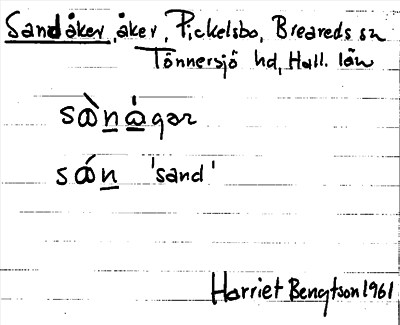 Sandåker, åker, Pickelsbo, Breareds sn
Tönnersjö hd, Hall. län
sànágər
sán 'sand'
Harriet Bengtson 1961